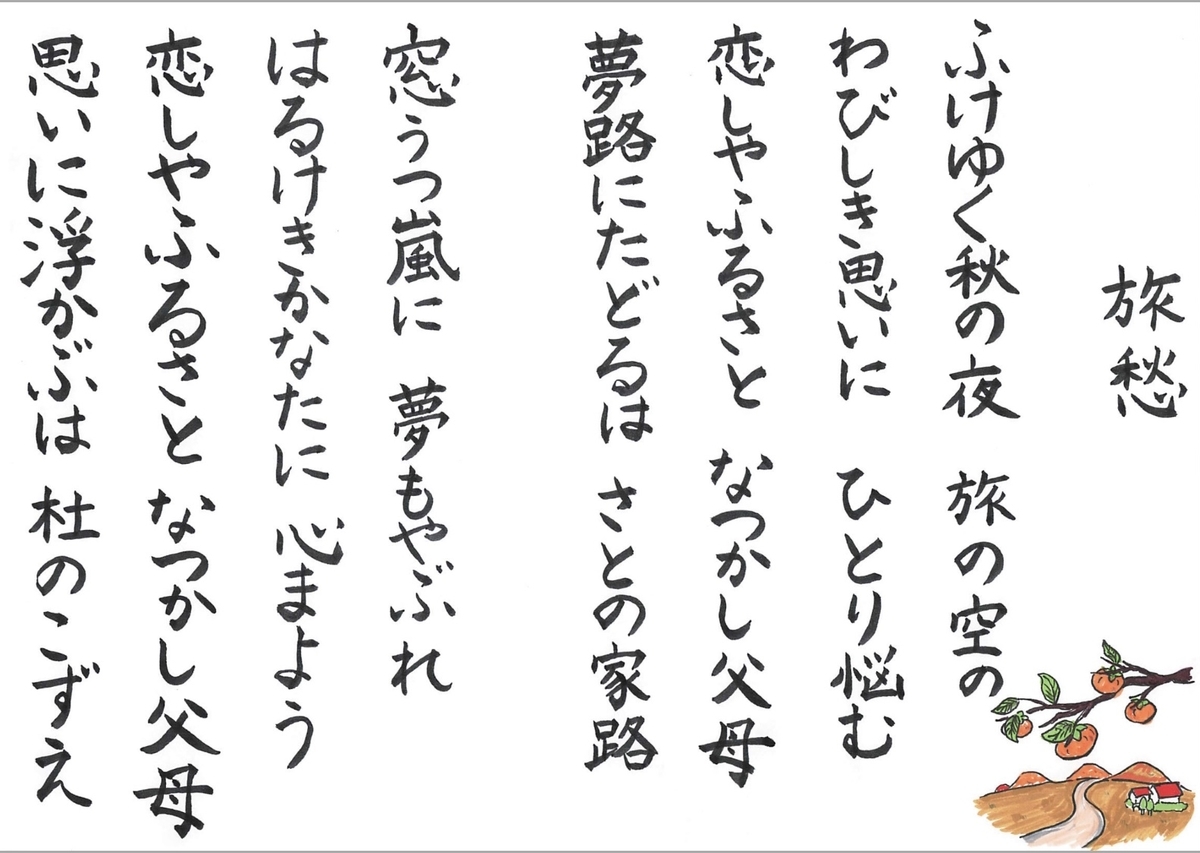 旅愁
ふけゆく秋の夜　旅の空の
わびしき思いに　ひとり悩む
恋しやふるさと　なつかし父母
夢路にたどるは　さとの家路
窓うつ嵐に　夢もやぶれ
はるけきかなたに　心まよう
恋しやふるさと　なつかし父母
思いに浮かぶは　杜のこずえ